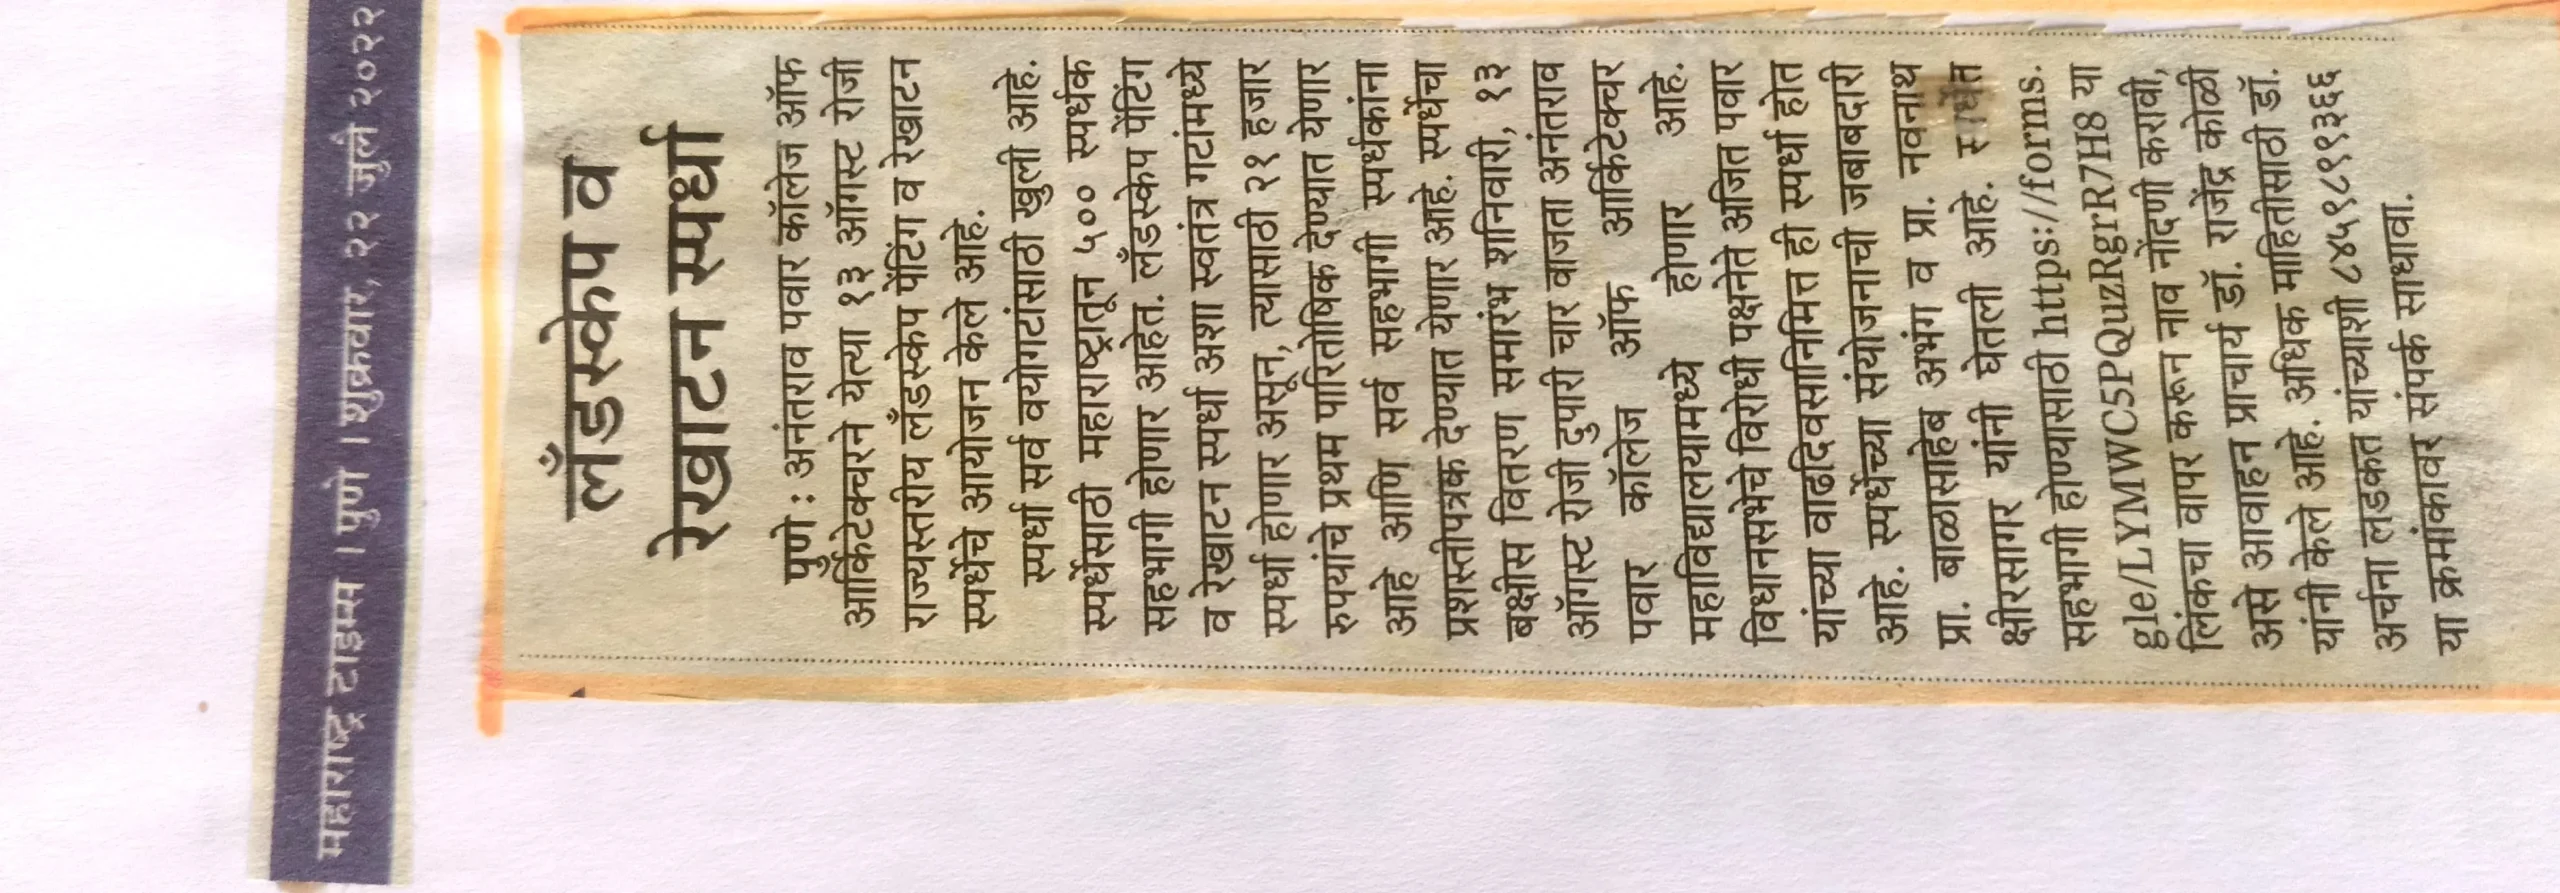 महाराष्ट्र टाइम्स । पुणे । शुक्रवार, २२ जुलै २०२२
लँडस्केप व
रेखाटन स्पर्धा
पुणे : अनंतराव पवार कॉलेज ऑफ
आर्किटेक्चरने येत्या १३ ऑगस्ट रोजी
राज्यस्तरीय लँडस्केप पेंटिंग व रेखाटन
स्पर्धेचे आयोजन केले आहे.
स्पर्धा सर्व वयोगटांसाठी खुली आहे.
स्पर्धेसाठी महाराष्ट्रातून ५०० स्पर्धक
सहभागी होणार आहेत. लँडस्केप पेंटिंग
व रेखाटन स्पर्धा अशा स्वतंत्र गटांमध्ये
स्पर्धा होणार असून, त्यासाठी २१ हजार
रुपयांचे प्रथम पारितोषिक देण्यात येणार
आहे आणि सर्व सहभागी स्पर्धकांना
प्रशस्तीपत्रक देण्यात येणार आहे. स्पर्धेचा
बक्षीस वितरण समारंभ शनिवारी, १३
ऑगस्ट रोजी दुपारी चार वाजता अनंतराव
पवार कॉलेज ऑफ आर्किटेक्चर
महाविद्यालयामध्ये होणार आहे.
विधानसभेचे विरोधी पक्षनेते अजित पवार
यांच्या वाढदिवसानिमित्त ही स्पर्धा होत
आहे. स्पर्धेच्या संयोजनाची जबाबदारी
प्रा. बाळासाहेब अभंग व प्रा. नवनाथ
क्षीरसागर यांनी घेतली आहे. स्पर्धेत
सहभागी होण्यासाठी https://forms.
gle/LYMWC5PQuzRgrR7H8 या
लिंकचा वापर करून नाव नोंदणी करावी,
असे आवाहन प्राचार्य डॉ. राजेंद्र कोळी
यांनी केले आहे. अधिक माहितीसाठी डॉ.
अर्चना लडकत यांच्याशी ८४५९८९१३६६
या क्रमांकावर संपर्क साधावा.